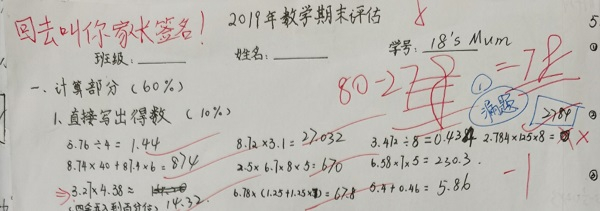 回去叫你家长签名!
2019年数学期末评估
班级: 姓名: 学号: 18's Mum
80-2 = 78
一、计算部分(60%)
① 漏题
1. 直接写出得数(10%)
2784
5.76÷4= 1.44 8.72×3.1= 27.032 3.472÷8=0.434 2.784×125×8=
8.74×40+87.4×6=874 2.5×6.7×8×5=670 6.58×7×5=230.3.
3.27×4.38≈ 14.32 6.78×(1.25+1.25×)=67.8 5.4+0.46=5.86
-1
(四舍五入到百分位)